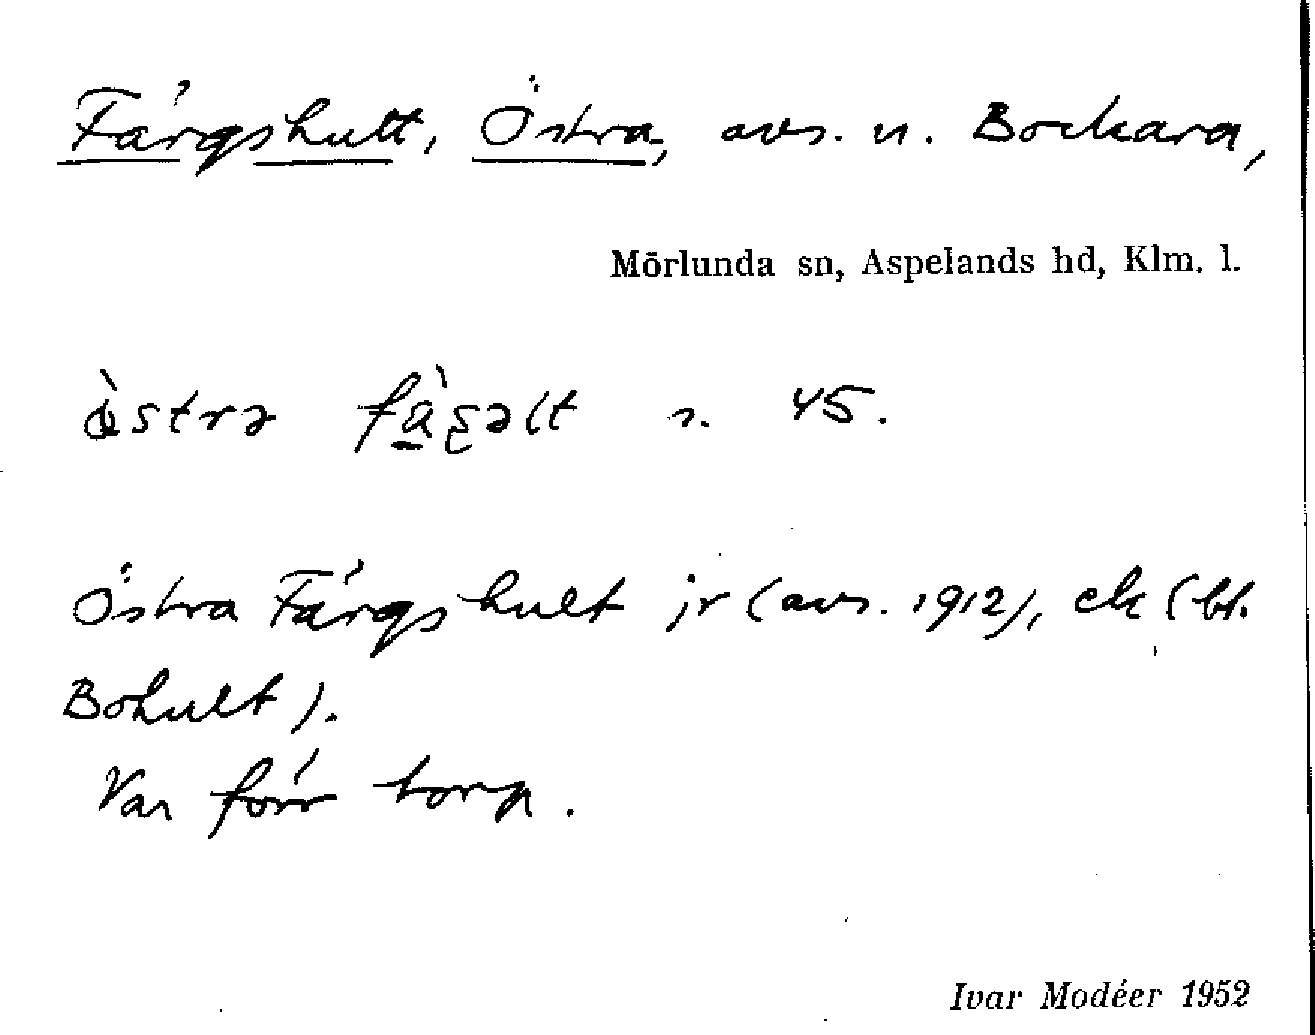 Färgshult, Östra, avs. u. Bockara,
Mörlunda sn, Aspelands hd, Klm. l.
s. 45.
Östra Färgshult jr (avs. 1912), ek (bl.
Bohult).
Var förr torp.
Ivar Modéer 1952